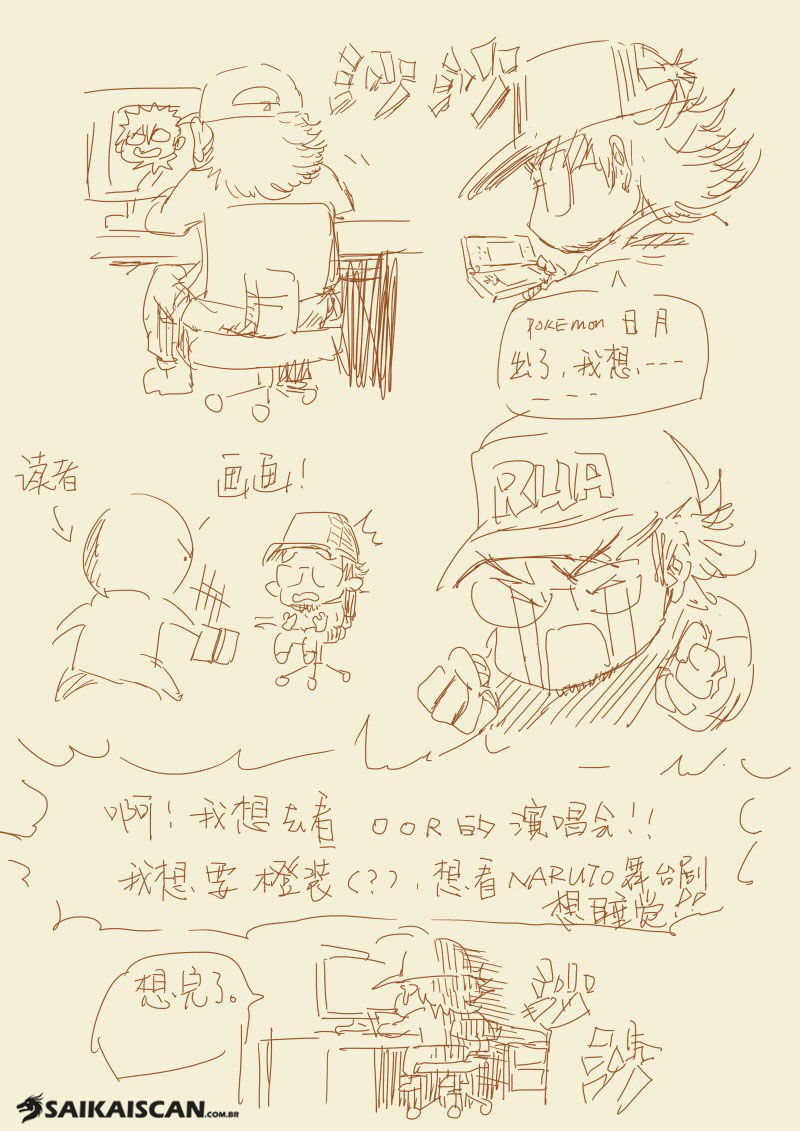 POKEMON 日月
出了，我想、---
---
读者
画画！
RUA
啊！我想去看 OOR的演唱会!!
我想要橙装(??)，想看NARUTO舞台剧
想睡觉!!
想完了。
SAIKAISCAN.COM.BR